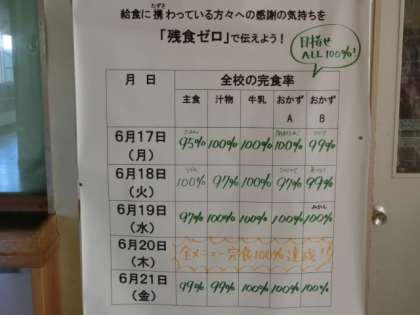 給食に携わっている方々への感謝の気持ちを
たずさ
「残食ゼロ」で伝えよう!
目指せ
ALL 100%!
月 日 全校の完食率
主食 汁物 牛乳 おかずA おかずB
6月17日(月) 95% 100% 100% 100% 99%
6月18日(火) 100% 97% 100% 97% 99%
みかん
6月19日(水) 97% 100% 100% 100% 100%
6月20日(木) 全メニュー完食100%達成!!
6月21日(金) 99% 99% 100% 100% 100%